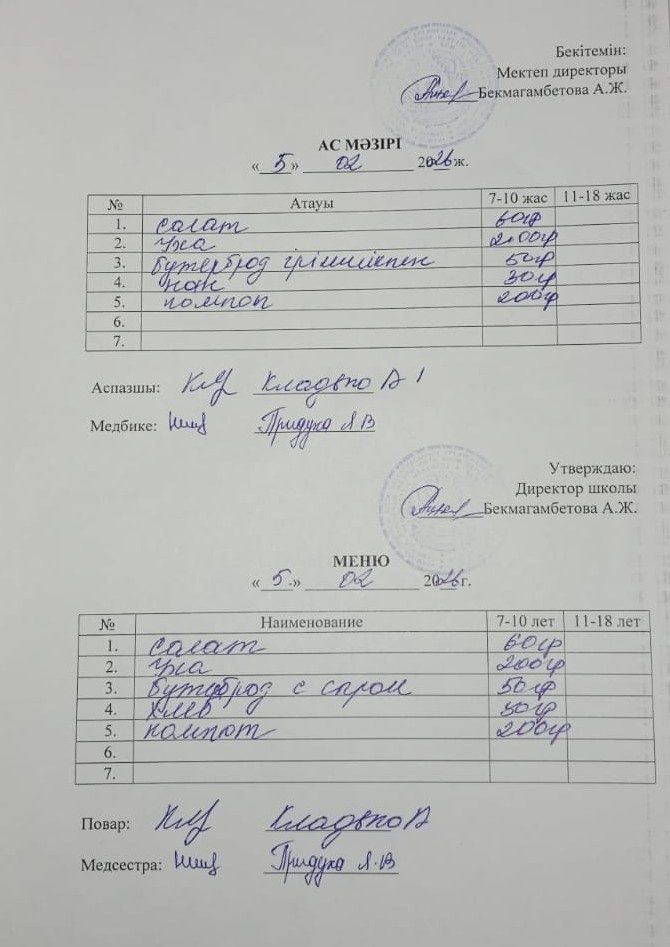 Бекітемін:
Мектеп директоры
Бекмагамбетова А.Ж.
АС МӘЗІРІ
« 5 » 02 2026 ж.
№ Атауы 7-10 жас 11-18 жас
1. салат 60гр
2. Уха 200гр
3. бутерброд ірімшікпен 50гр
4. нан 30гр
5. компот 200гр
6.
7.
Аспазшы: Кладько В
Медбике: Придуха Л В
Утверждаю:
Директор школы
Бекмагамбетова А.Ж.
МЕНЮ
« 5 » 02 2026 г.
№ Наименование 7-10 лет 11-18 лет
1. салат 60гр
2. Уха 200гр
3. Бутерброд с сыром 50гр
4. хлеб 30гр
5. компот 200гр
6.
7.
Повар: Кладько В
Медсестра: Придуха Л.В